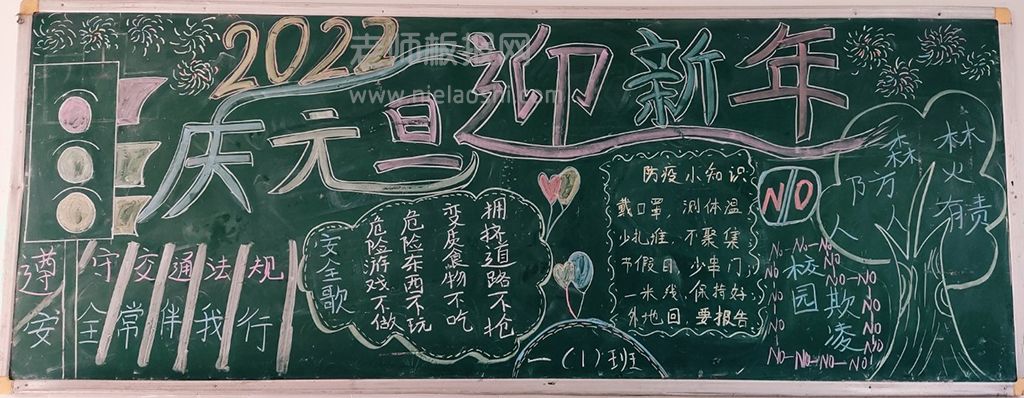 2022
老师板报网
www.nielaoshi.com
庆元旦 迎新年
遵守交通法规
安全常伴我行
安全歌
拥挤道路不抢
变质食物不吃
危险东西不玩
危险游戏不做
防疫小知识
戴口罩,测体温
少扎堆,不聚集
节假日,少串门
一米线,保持好
外地回 要报告
一(1)班
NO
NO-NO-NO
NO NO-NO
NO NO
NO NO
NO NO
NO-NO-NO-NO
校园欺凌
森林
防火
人人有责